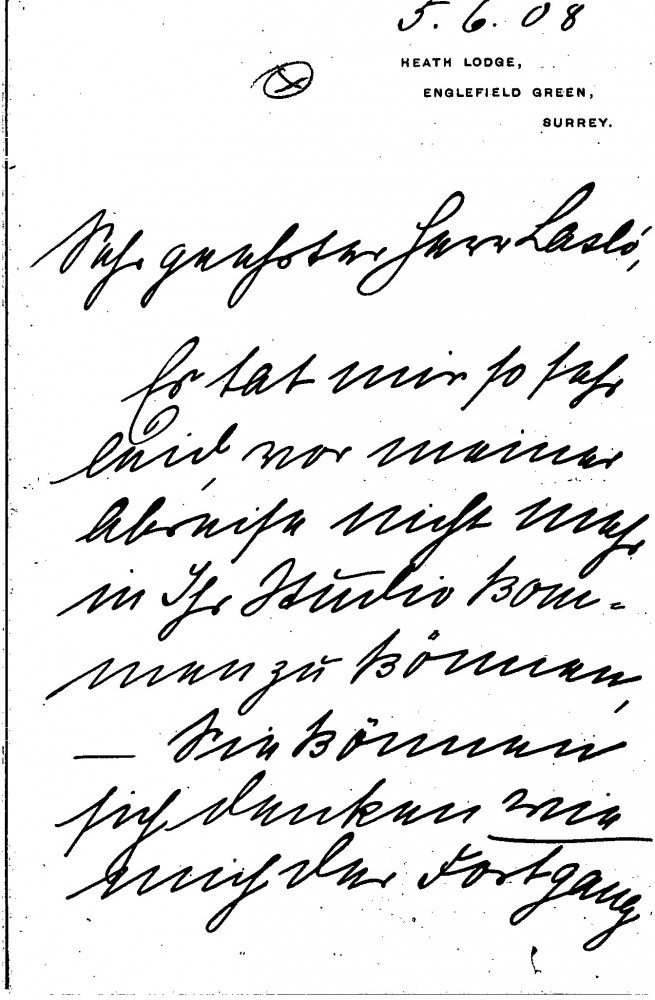 5.6.08
HEATH LODGE,
ENGLEFIELD GREEN,
SURREY.
Sehr geehrter Herr Lásló,
Es tat mir so sehr
leid, vor meiner
Abreise nicht mehr
in Ihr Studio kom=
men zu können,
— Sie können
sich denken wie
mich der Fortgang